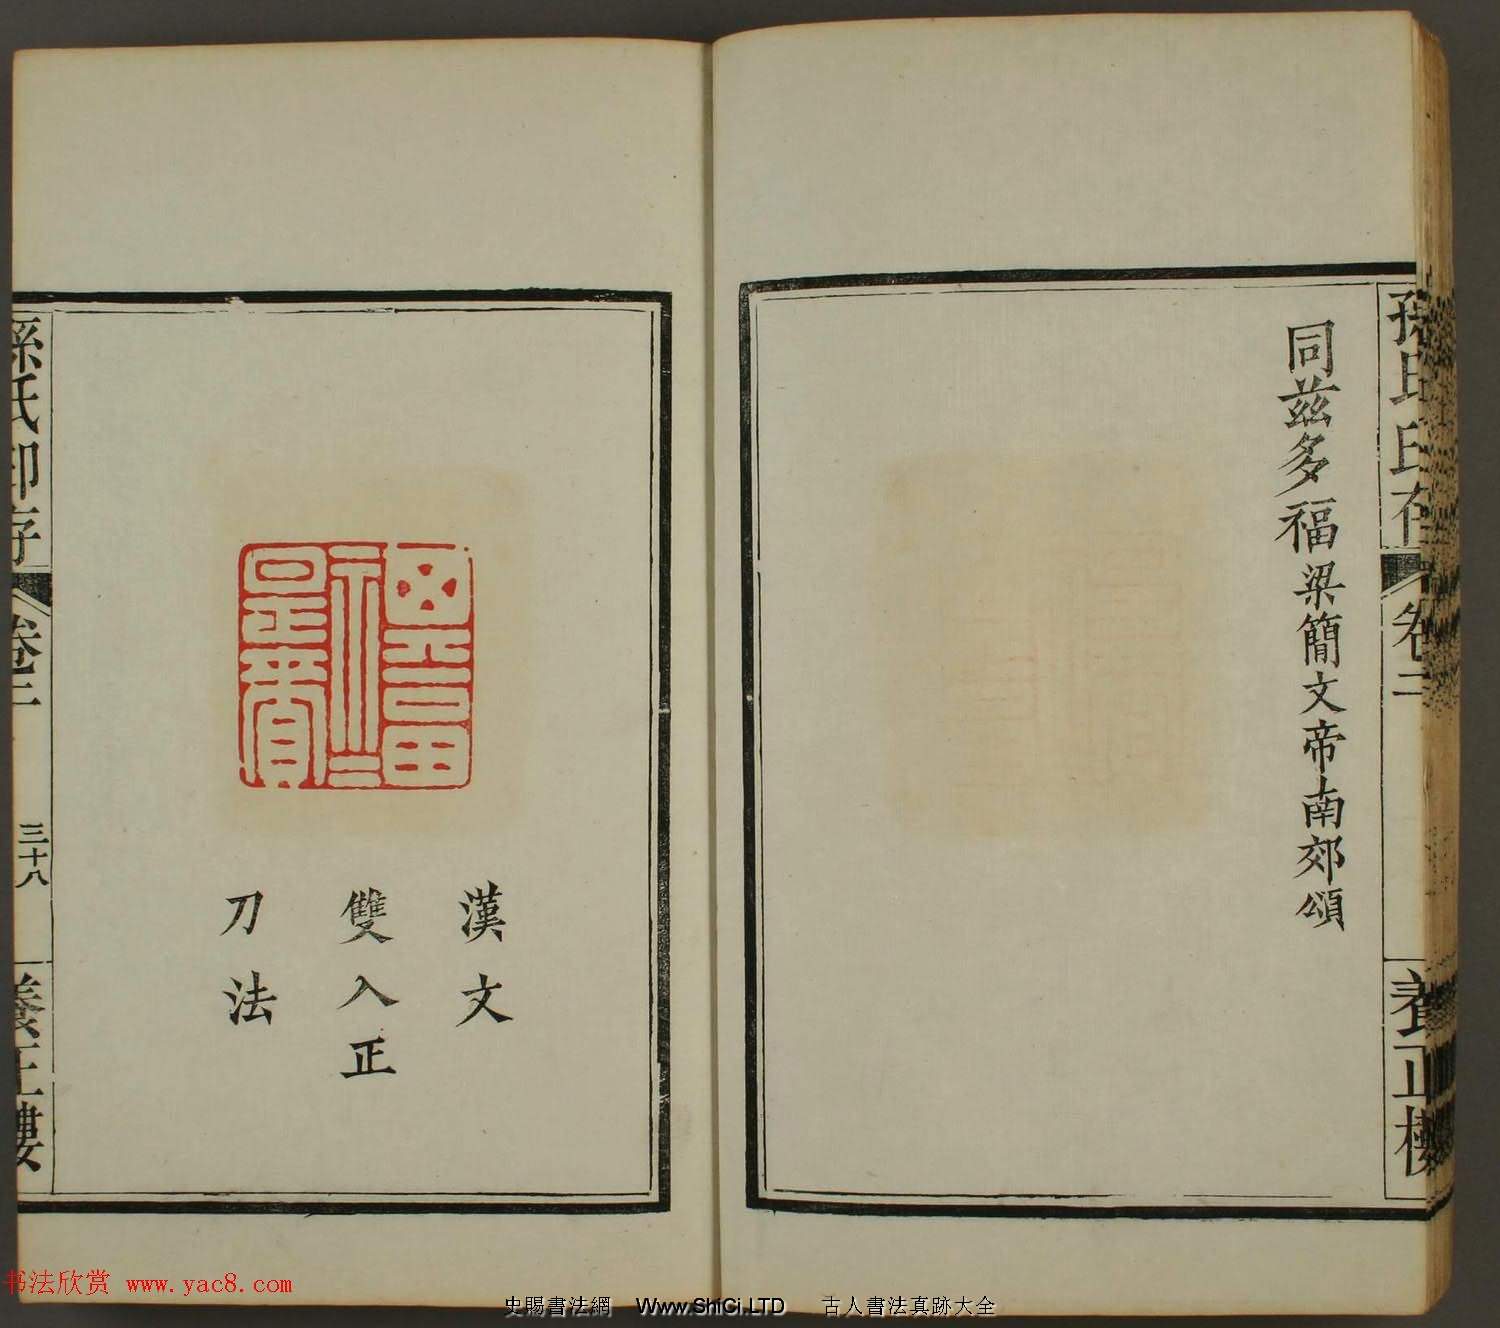 孫氏印存
卷二
養正樓
同茲多福梁簡文帝南郊頌
漢文
雙入正
刀法
孫氏印存
卷二
三十八
養正樓
书法欣赏 www.yac8.com
史賜書法網 Www.ShiCi.LTD 古人書法真跡大全